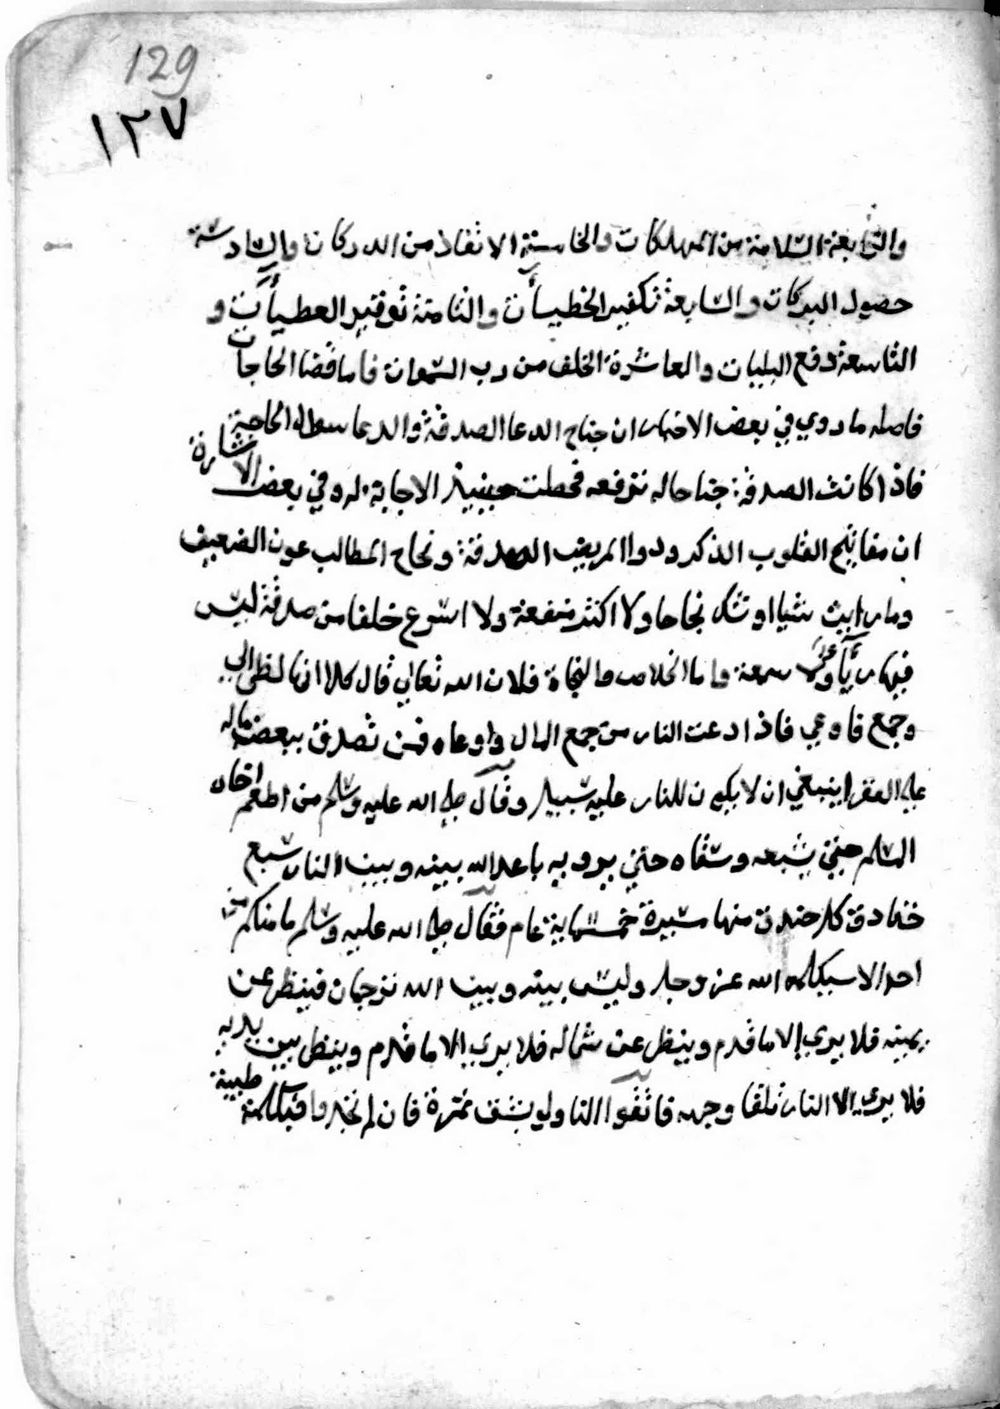 129
١٢٧
والرابعة السلامة من المهلكات والخامسة الانقاذ من الدركات والسادسة
حصول البركات والسابعة تكفير الخطيأت والثامنة توفير العطيأت و
التاسعة دفع البليات والعاشرة الخلف من رب السموات فاما قضا الحاجات
فاصله ما روي في بعض الاخبار ان جناح الدعا الصدقة والدعا سوال الحاجة
فاذا كانت الصدقة جناحا له ترفعه فحصلت حينيذ الاجابة له وفي بعض الاشارة
ان مفاتيح القلوب الذكر ودوا المريض الصدقة ونجاح المطالب عون الضعيف
وما رايت شيا اوشك نجاحا ولا اكثر منفعة ولا اسرع خلفا من صدقة ليس
فيها رياً ولا سمعة واما الخلاص والنجاة فلان الله تعالي قال كلا انها لظى الي
وجمع فاوعي فاذا دعت النار من جمع المال واوعاه فمن تصدق ببعض ماله
علي الفقرا ينبغي ان لا يكون للنار عليه سبيل وقال صلي الله عليه وسلم من اطعم اخاه
المسلم حتي يشبعه وسقاه حتي يرويه باعد الله بينه وبين النار سبع
خنادق كل خندق منها مسيرة خمسماية عام فقال صلي الله عليه وسلم ما منكم من
احد الا سيكلمه الله عز وجل وليس بينه وبين الله ترجمان فينظر عن
يمينه فلا يري الا ما قدم وينظر عن شماله فلا يري الا ما قدم وينظر بين يديه
فلا يري الا النار تلقا وجهه فاتقوا النار ولو بشق تمرة فان لم تجدوا فبكلمة طيبة